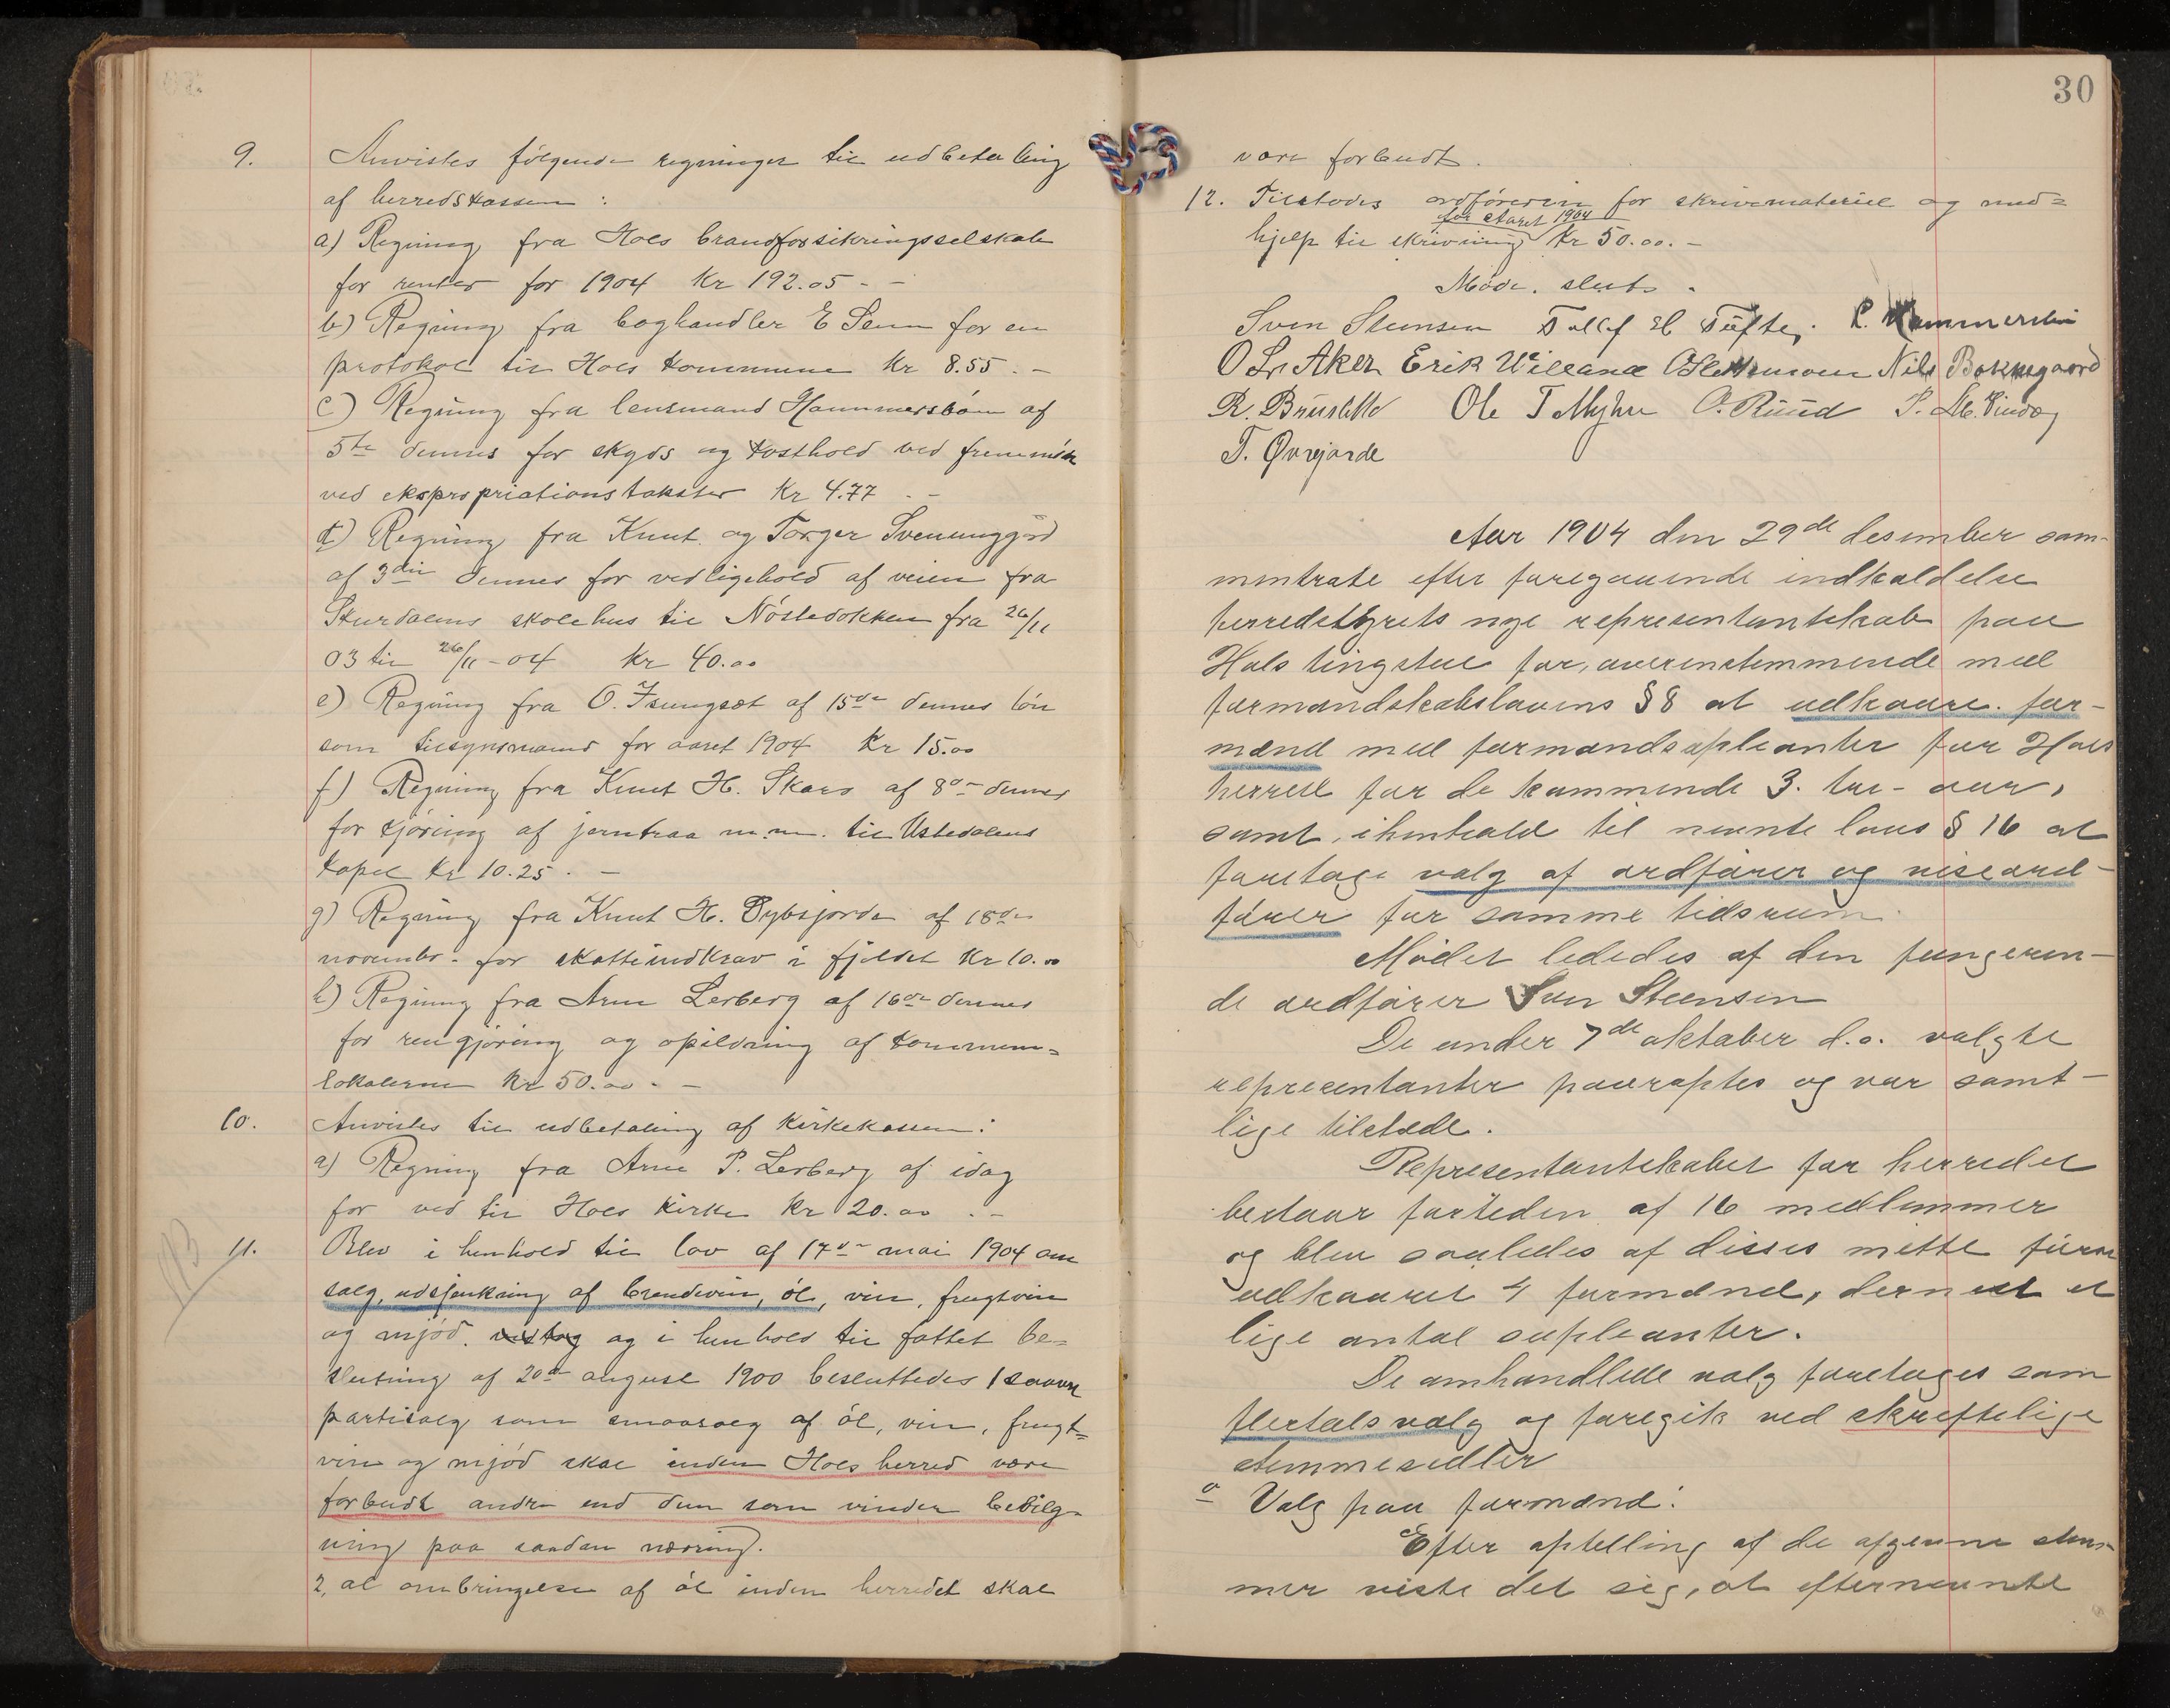 9. Anvistes følgende regninger til udbetaling
af herredskassen :
a) Regning fra Hols brandforsikringsselskab
for renter for 1904 Kr 192.05 - -
b) Regning fra boghandler E Senn for en
protokol til Hols kommune Kr 8.55 . -
c) Regning fra lensmand Hammersbøen af
5te dennes for skyds og kosthold ved fremmøde
ved ekspropriationstakster Kr 4.77 . -
d) Regning fra Knut og Torger Sveinunggard
af 3die dennes for vedligehold af veien fra
Skurdalens skolehus til Nøstedokken fra 26/11
03 til 26/11-04 Kr 40.00
e) Regning fra O. Isungset af 15de dennes løn
som tilsynsmand for aaret 1904 Kr 15.00
f) Regning fra Knut H. Skaro af 8de dennes
for kjøring af jerntraa m.m. til Ustedalens
kapel Kr 10.25 . -
g) Regning fra Knut H. Sybsjorde af 18de
novembr. for skatteindkrav i fjeldet Kr 10.00
h) Regning fra Arne Lerberg af 16de dennes
for rengjøring og opildning af kommune=
lokalerne Kr 50.00 - -
10. Anvistes til udbetaling af kirkekassen :
a) Regning fra Arne P. Lerberg af idag
for ved til Hols kirke Kr 20.00 . -
11. Blev i henhold til lov af 17de mai 1904 om
salg, udskjænkning af brændevin, øl, vin, frugtvin
og mjød. og i henhold til fattet be=
slutning af 20de august 1900 besluttedes 1 saavel
partisalg som smaasalg af øl, vin, frugt=
vin og mjød skal inden Hols herred være
forbudt andre end dem som vinder bevilg-
ning paa saadan næring.
2, at ombringelse af øl inden herredet skal
30
være forbudt.
12. Tilstodes ordføreren for skrivemateriel og med=
for Aaret 1904
hjelp til skrivning Kr 50.00. -
Møde. slut .
Sven Steensen Tollef H Tufte, L. Hammersbøen
O L. Aker Erik Villand O Flettemoen Nils Boknegaard
R. Brusletto Ole T Myhre O. Ruud
T. Øvrejorde
Aar 1904 den 29de desember sam-
mentraate efter foregaaende indkaldelse
herredstyrets nye representantskab paa
Hols tingstue for, overenstemmende med
formandskabslovens § 8 at udkaare. for-
mænd med formandsupleanter for Hols
herred for de kommende 3. tre- aar,
samt, ihenhold til nævnte lovs § 16 at
foretage valg af ordfører og viseord-
fører for samme tidsrum.
Mødet lededes af den fungeren-
de ordfører Sven Steensen
De under 7de oktober d.a. valgte
representanter paaroptes og var samt-
lige tilstede.
Representantskabet for herredet
bestaar fortiden af 16 medlemmer
og blev saaledes af disses mitte først
udkaaret 4 formænd, dernest et
lige antal supleanter.
De omhandlede valg foretages som
flertalsvalg og foregik ved skreftelige
stemmesedler
a Valg paa formænd:
Efter optelling af de afgevne stem-
mer viste det sig, at efternevnte